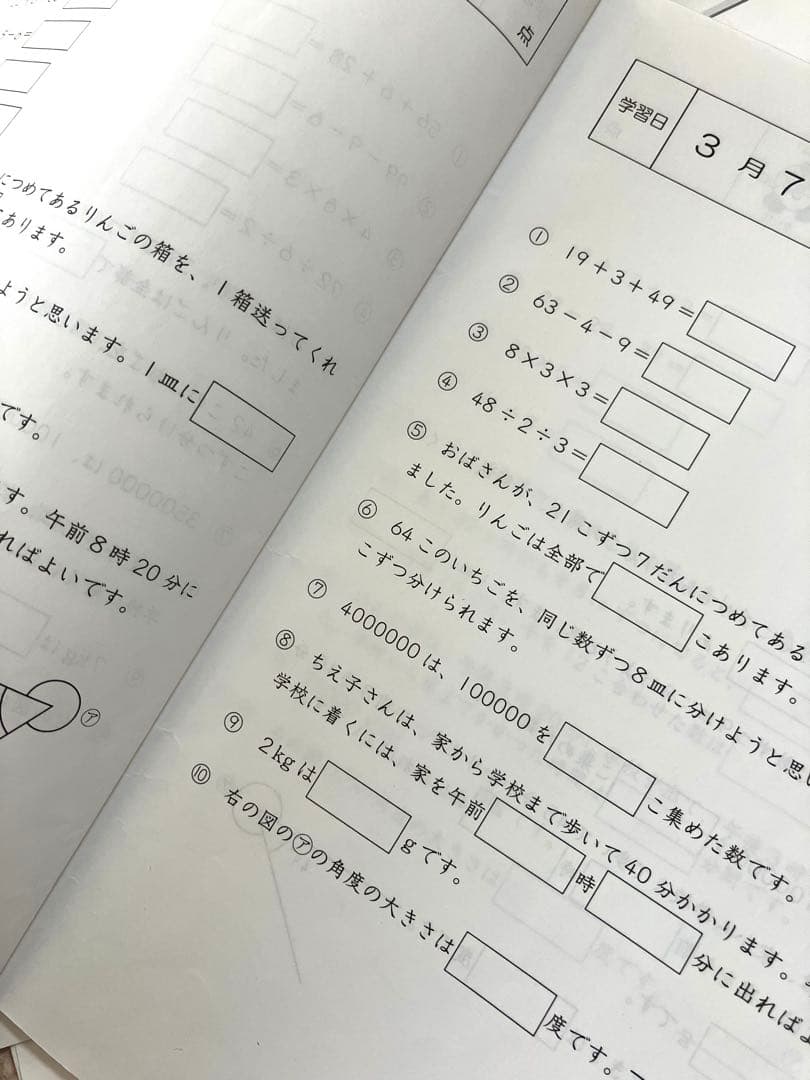 点
につめてあるりんごの箱を、1箱送ってくれ
あります。
ようと思います。1皿に
です。
す。午前8時20分に
ればよいです。
㋐
学習日
3月7
① 19+3+49=
② 63-4-9=
③ 8×3×3=
④ 48÷2÷3=
⑤ おばさんが、21こずつ7だんにつめてある
ました。りんごは全部で こあります。
⑥ 64このいちごを、同じ数ずつ8皿に分けようと思い
こずつ分けられます。
⑦ 4000000は、100000を こ集めた数です。
⑧ ちえ子さんは、家から学校まで歩いて40分かかります。
学校に着くには、家を午前 時 分に出ればよ
⑨ 2kgは gです。
⑩ 右の図の㋐の角度の大きさは 度です。